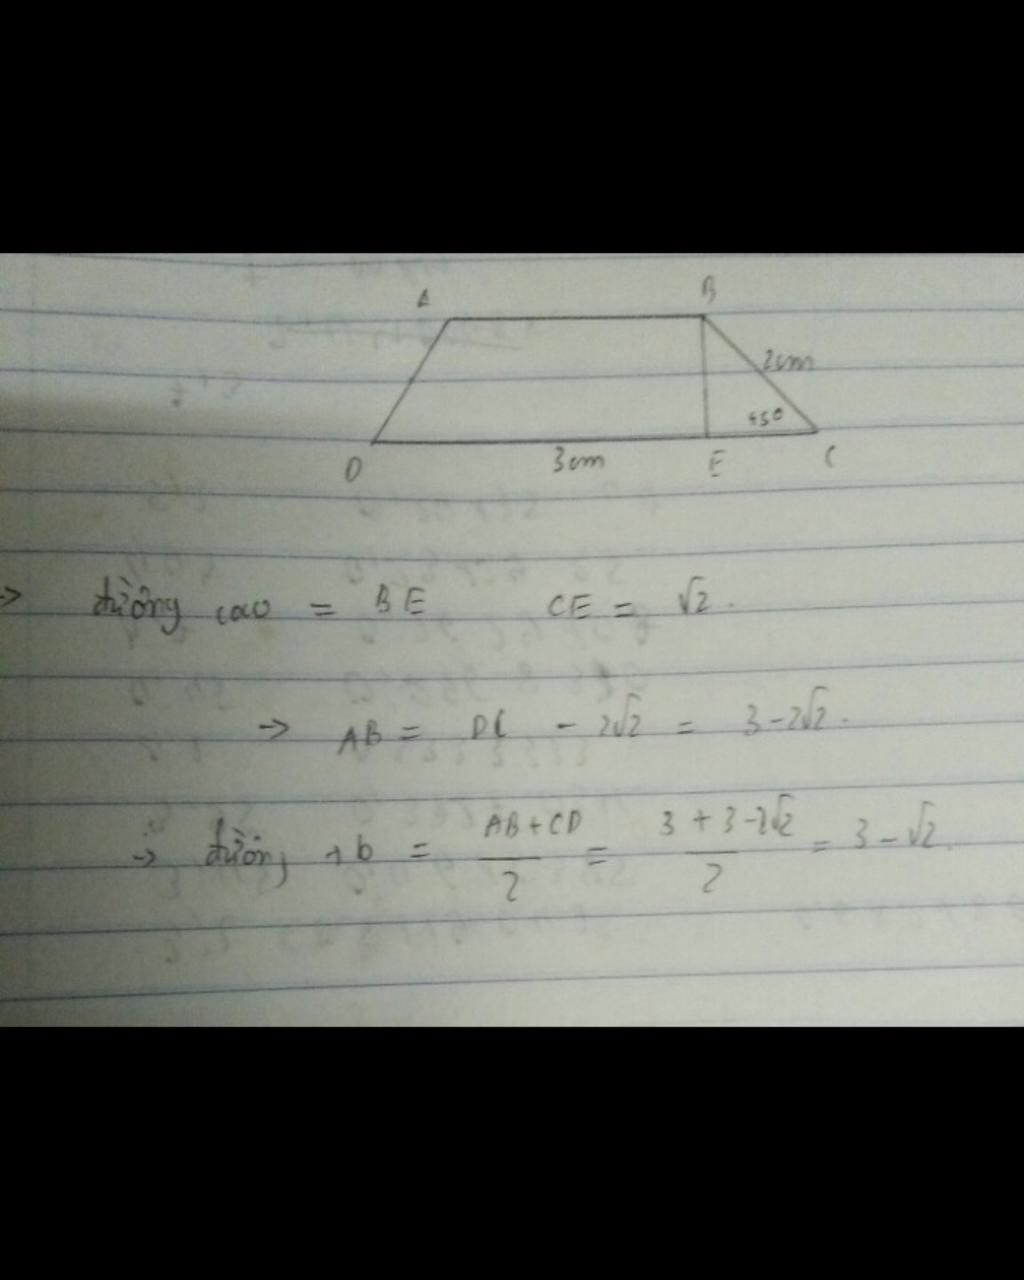 A B
2cm
450
D 3cm E C
→ đường cao = BE CE = √2.
→ AB = DC - 2√2 = 3-2√2.
→ đường +b = AB+CD / 2 = 3+3-2√2 / 2 = 3-√2.